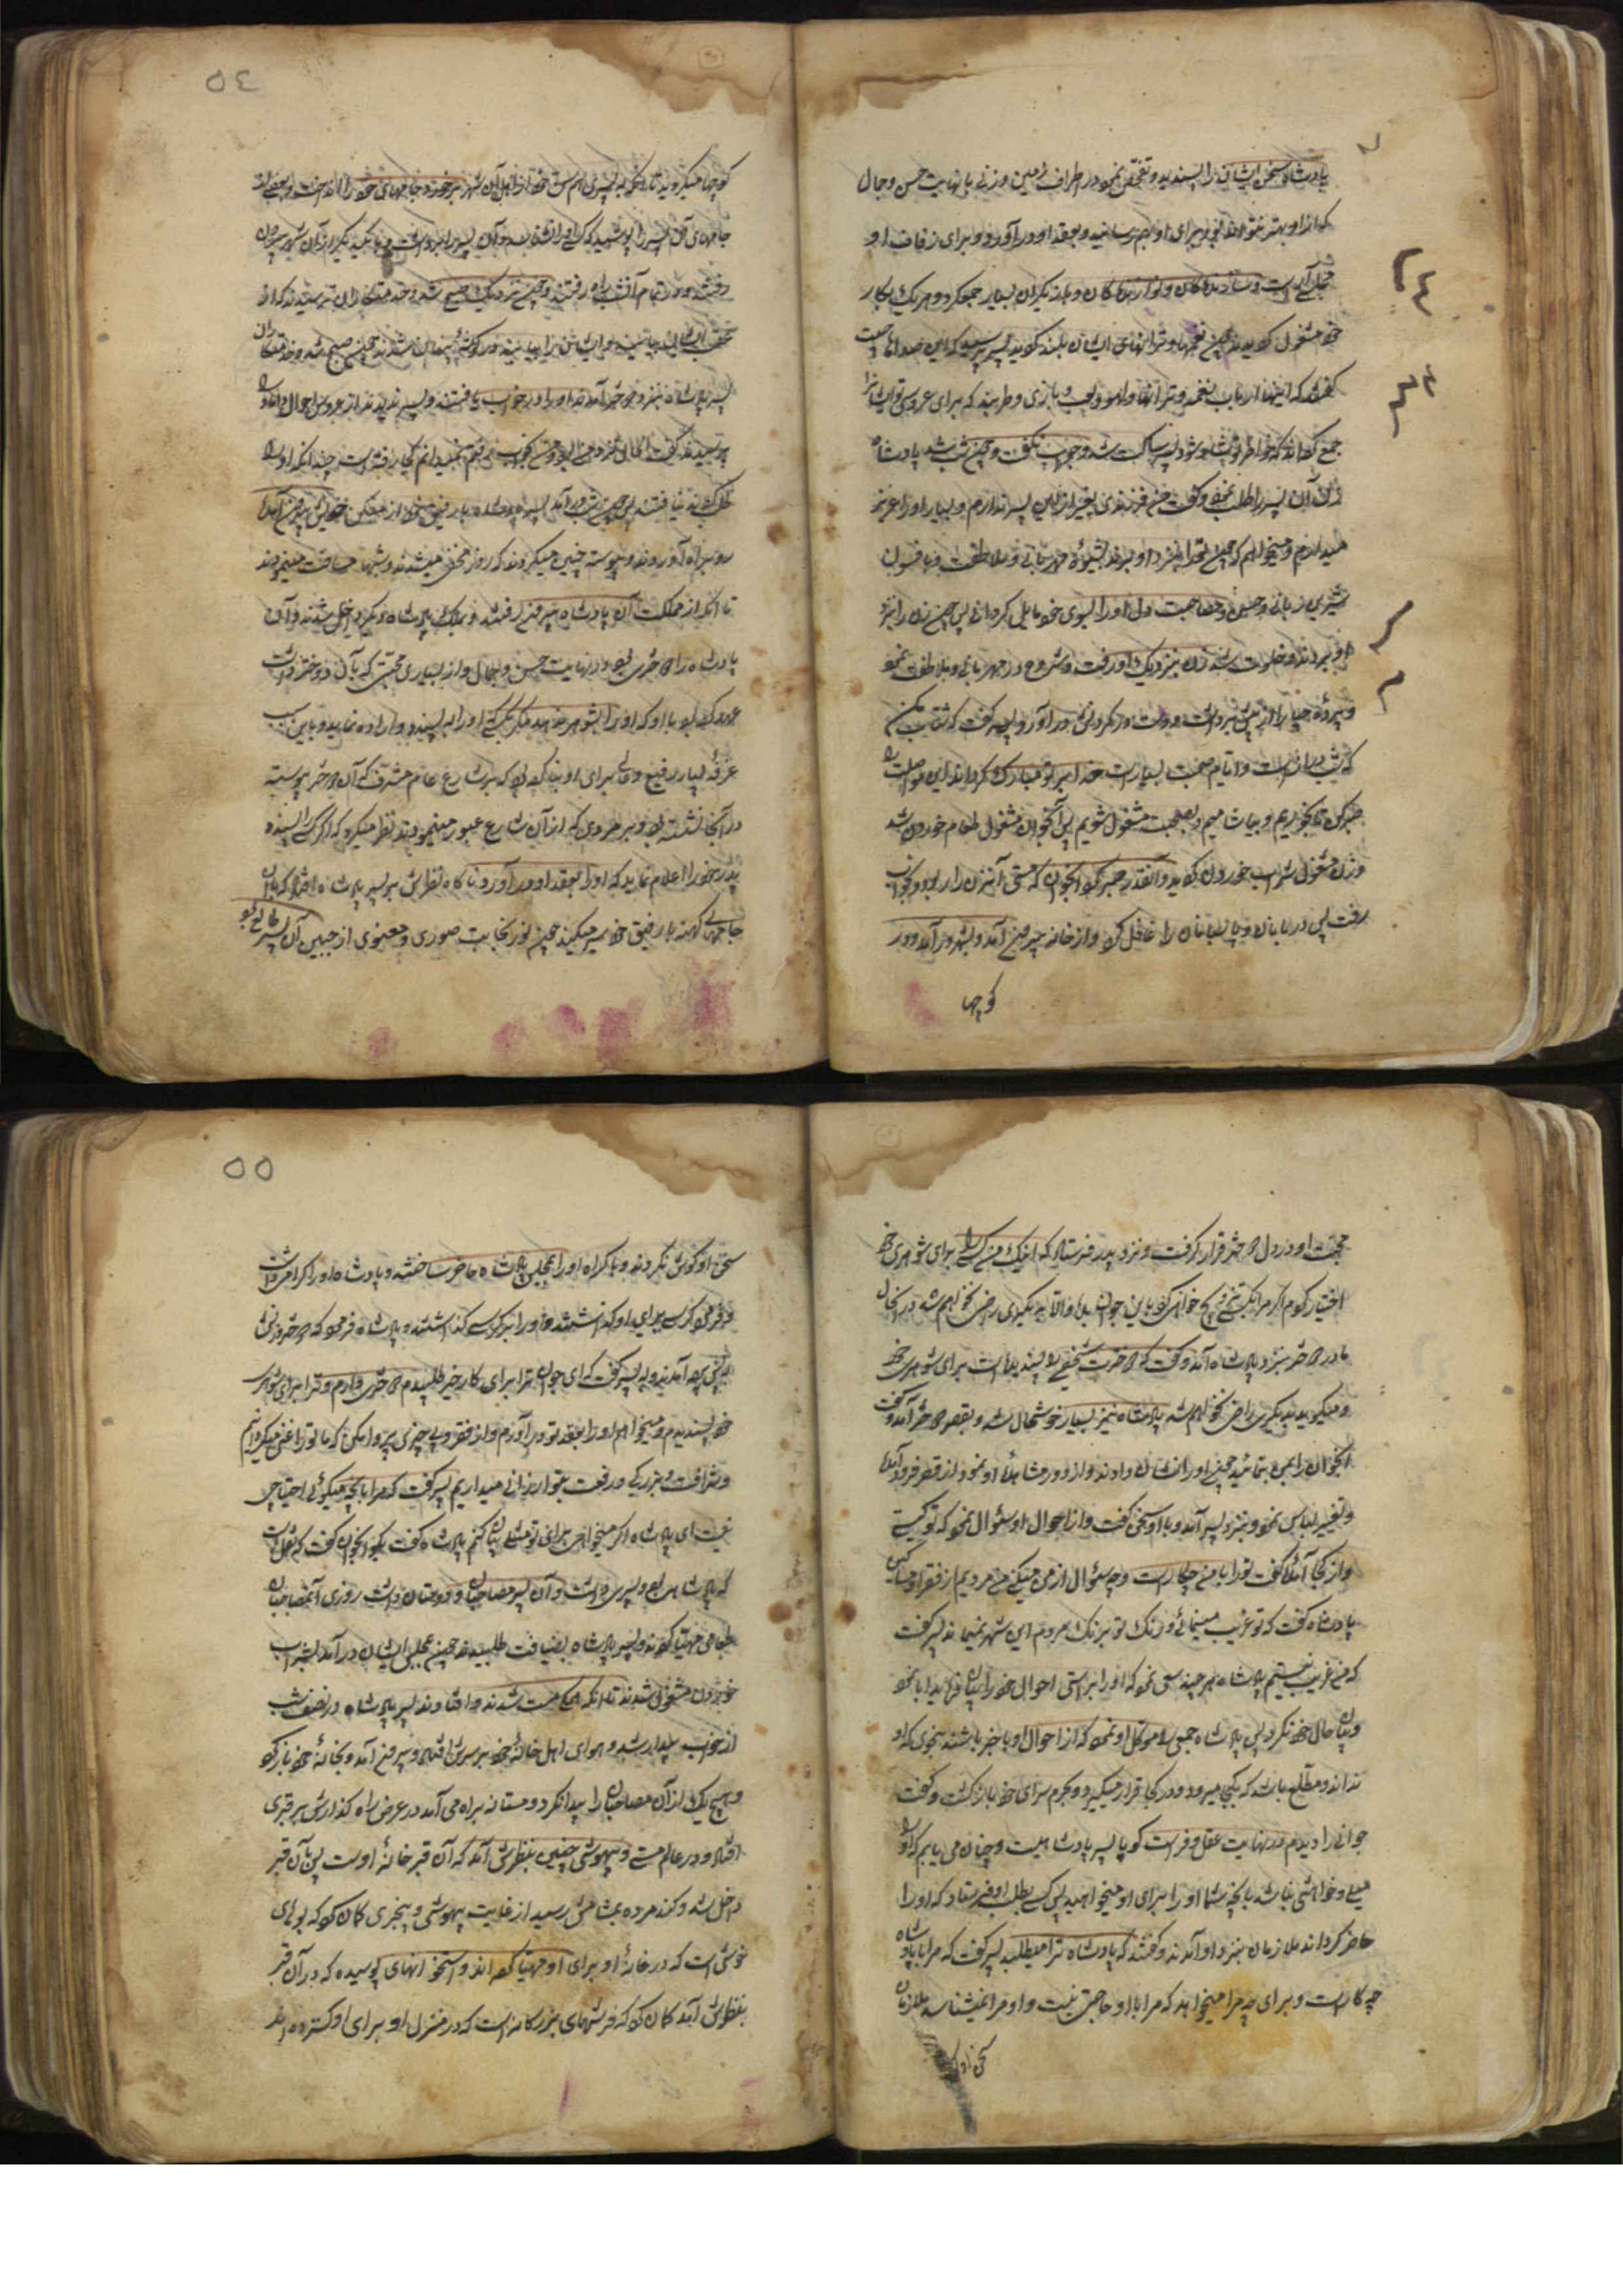 پادشاه سخن ایشان را پسندید و تفحص نمود در اطراف زمین و زنی با نهایت حسن و جمال
که از او بهتر نتواند بود برای او بهم رسانید و بعقد او در آورد و برای زفاف او
مجلسی آراست و سازندگان و نوازندگان و بازیگران بسیار جمع کرد و هر یک بکار
خود مشغول گردیدند چون نغمها و ترانهای ایشان بلند گردید پسر پرسید که این صداها چیست
گفتند که اینها ارباب نغمه و ترانها و لهو و لعب و بازی و طربند که برای عروسی تو ایشانرا
جمع کرده‌اند که خاطر تو شاد شود پسر ساکت شد و جواب نگفت و چون شب شد پادشاه
زن آن پسر را طلب نمود و گفت من فرزندی بغیر از این پسر ندارم و بسیار او را عزیز
میدارم و میخواهم که چون ترا بنزد او برند بشیوه مهربانی و ملاطفت و بافسون
شیرین زبانی و حسن مصاحبت دل او را بسوی خود مایل گردانی پس چون زن را بنزد
او بردند و خلوت شد زن بنزدیک او رفت و شروع در مهربانی و ملاطفت نمود
و پرده حیا را از پیش برداشت و دست در گردنش در آورد پسر گفت که شتاب مکن
که شب دراز است و ایام صحبت بسیار است خدا بر تو مبارک گرداند این مواصلت را
صبر کن تا بخوریم و بیاشامیم و بصحبت مشغول شویم پس آنجوان مشغول طعام خوردن شد
و زن مشغول شراب خوردن گردید و آنقدر صبر کرد آنجوان که مستی آنزن را ربود و بخواب
رفت پس دربانان و پاسبانان را غافل کرد و از خانه بیرون آمد و بشهر در آمد و در
کوچها
٥٤
کوچها میگردید تا آنکه به پسری هم سن خود از اهل آن شهر برخورد و جامهای خود را انداخت و بعضی از
جامهای آن پسر را پوشید که کسی او را نشناسد و آن پسر را برداشت و با یکدیگر از آن شهر بیرون
رفتند و در تمام آن شب راه رفتند و چون نزدیک صبح شد و خدمتکاران ترسیدند که از
عقب ایشان بیایند و ایشان را بیابند در گوشه پنهان شدند چون صبح شد و خدمتکاران
پسر پادشاه بنزد عروس آمدند او را در خواب یافتند و پسر ندیدند از عروس احوال داماد را
پرسیدند گفت الحال نزد من بود و من بخواب رفتم نمیدانم کجا رفته است چندانکه او را
طلبیدند نیافتند پس چون شب در آمد پسر پادشاه با رفیق خود از مکان خویش بیرون آمدند
رو براه آوردند و پیوسته چنین میکردند که روز مخفی میشدند و شبها مسافت میپیمودند
تا آنکه از مملکت آن پادشاه بیرون رفتند و بملک پادشاه دیگر داخل شدند و آن
پادشاه را دختری بود در نهایت حسن و جمال و از بسیاری محبتی که بآن دختر داشت
عهد کرده بود با او که او را بشوهر ندهد مگر بکسی که او را بپسندد و اراده نماید و باین سبب
غرفه بسیار رفیع و عالی برای او بنا کرده بود که بر شارع عام مشرف بود که آن دختر پیوسته
در آنجا نشسته بود و بمردمی که از آن شارع عبور مینمودند نظر میکرد که اگر کسی را پسنده
پدر خود را اعلام نماید که او را بعقد او در آورد ناگاه نظرش بر پسر پادشاه افتاد که با آن
جامهای کهنه با رفیق خود سیر میکند چون نور نجابت صوری و معنوی از جبین آن پسر طالع بود
محبت او در دل دختر قرار گرفت و نزد پدر فرستاد که اینک من کسی را برای شوهری خود
اختیار کردم اگر مرا بکسی تزویج خواهی کرد باین جوان بده والا بدیگری راضی نخواهم شد در اینحال
مادر دختر بنزد پادشاه آمد و گفت که دخترت شخصی را پسندیده است برای شوهری خود
و میگوید بدیگری راضی نخواهم شد پادشاه نیز بسیار خوشحال شد و بقصر دختر آمد و گفت
آنجوان را بمن بنمائید چون او را نشان دادند و از دور مشاهده او نمود از قصر فرود آمد
و تغییر لباس نمود و بنزد پسر آمد و با او سخن گفت و از احوال او سئوال نمود که تو کیستی
و از کجا آمده گفت تو را با من چکار است و چه سئوال از من میکنی من مردیم از فقرا و مساکین
پادشاه گفت که تو غریب مینمائی و رنگ تو برنگ مردم این شهر نمیماند پسر گفت
که من غریب نیستم پادشاه هر چند سعی نمود که او را براستی احوال خود را بیان فرماید ابا نمود
و بیان حال خود نکرد پس پادشاه جمعی را موکل او نمود که از احوال او با خبر باشند بنحوی که او
نداند و مطلع باشند که بکجا میرود و در کجا قرار میگیرد و بحرم سرای خود بازگشت و گفت
جوانی را دیدم در نهایت عقل و فراست گویا پسر پادشاهیست و چنان می یابم که او را
میلی و خواهشی نباشد بآنچه شما او را برای او میخواهید پس کسی بطلب او فرستاد که او را
حاضر گرداند ملازمان بنزد او آمدند و گفتند که پادشاه ترا میطلبد پسر گفت که مرا با پادشاه
چه کار است و برای چه مرا میخواهد که مرا با او حاجتی نیست و او مرا نمیشناسد ملازمان
سخن او
٥٥
سخن او گوش نکردند و باکراه او را بمجلس پادشاه حاضر ساختند و پادشاه او را اکرام داشت
و فرمود کرسی برای او گذاشتند و او را بر کرسی گذاشتند و پادشاه فرمود که دختر و زنش
پس پرده آمدند و به پسر گفت که ای جوان ترا برای کار خیر طلبیدم دختری دارم و ترا برای شوهری
خود پسندیدم و میخواهم او را بعقد تو در آورم و از فقر و بی چیزی پروا مکن که ما تو را غنی میگردانیم
و شرافت و بزرگی و رفعت بتو ارزانی میداریم پسر گفت که مرا بآنچه میگوئی احتیاجی
نیست ای پادشاه اگر میخواهی برای تو مثلی بیان کنم پادشاه گفت بگو آنجوان گفت که نقل است
که پادشاهی بود و پسری داشت و آن پسر مصاحبان و دوستان داشت روزی آنمصاحبان
طعامی مهیا کردند و پسر پادشاه بضیافت طلبیدند چون بمجلس ایشان در آمد بشراب
خوردن مشغول شدند تا آنکه همگی مست شدند و افتادند پسر پادشاه در نصف شب
از خواب بیدار شد و هوای اهل خانه خود بر سرش افتاد و بیرون آمد و بخانه خود باز گردد
و هیچ یک از آن مصاحبان را بیدار نکرد و مستانه براه می آمد در عرض راه گذارش بر قبری
افتاد و در عالم مستی و بیهوشی چنین بنظرش آمد که آن قبر خانه اوست پس بآن قبر
داخل شد و گند مرده بمشامش رسید از غایت بیهوشی و بیخبری گمان کرد که بوهای
خوشی است که در خانه او برای او مهیا کرده اند و استخوانهای پوسیده که در آن قبر
بنظرش آمد گمان کرد که فرشهای بزرگانه است که در منزل او برای او گسترده اند